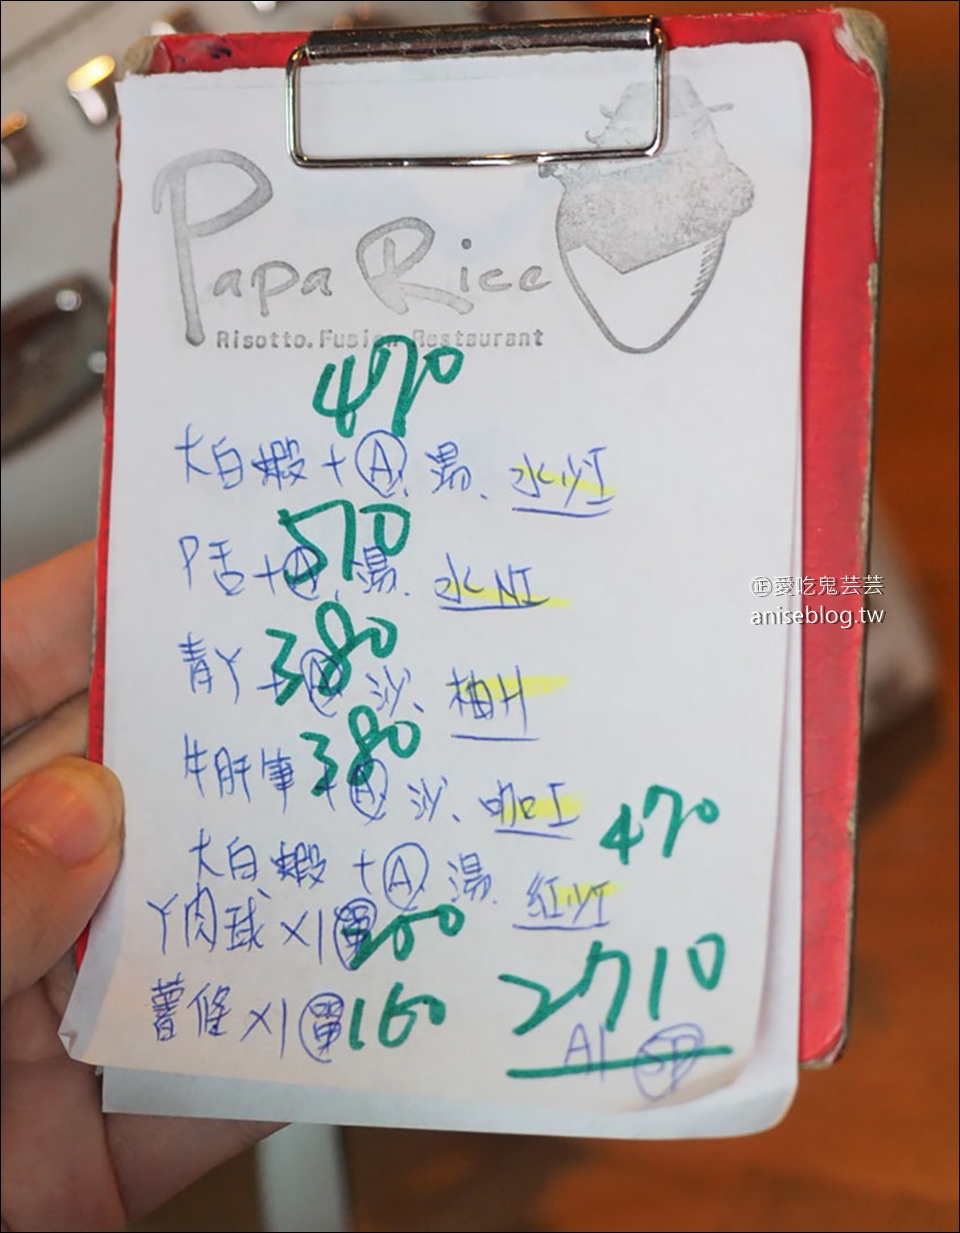 Papa Rice
Risotto.Fusion Restaurant
470
大白蝦+Ⓐ、湯、水少I
570
P舌+Ⓐ、湯、水NI
380
青丫+Ⓐ、沙、柏H
380
牛肝蕈+Ⓐ、沙、咖I
470
大白蝦+Ⓐ、湯、紅少I
丫肉球 X1 單 200
薯條 X1 單 160
2710
A1
㊣愛吃鬼芸芸
aniseblog.tw